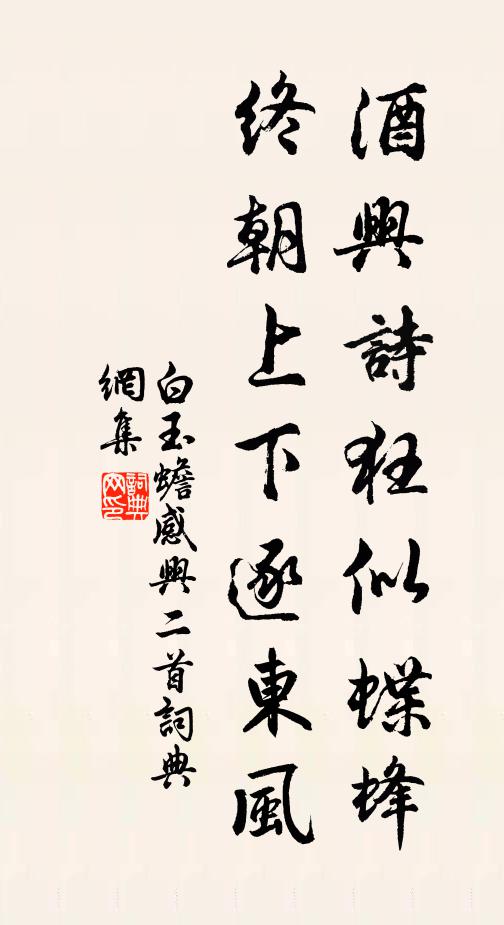 酒興詩狂似蝶蜂
終朝上下逐東風
白玉蟾感興二首詞典
網集
詞典
网印